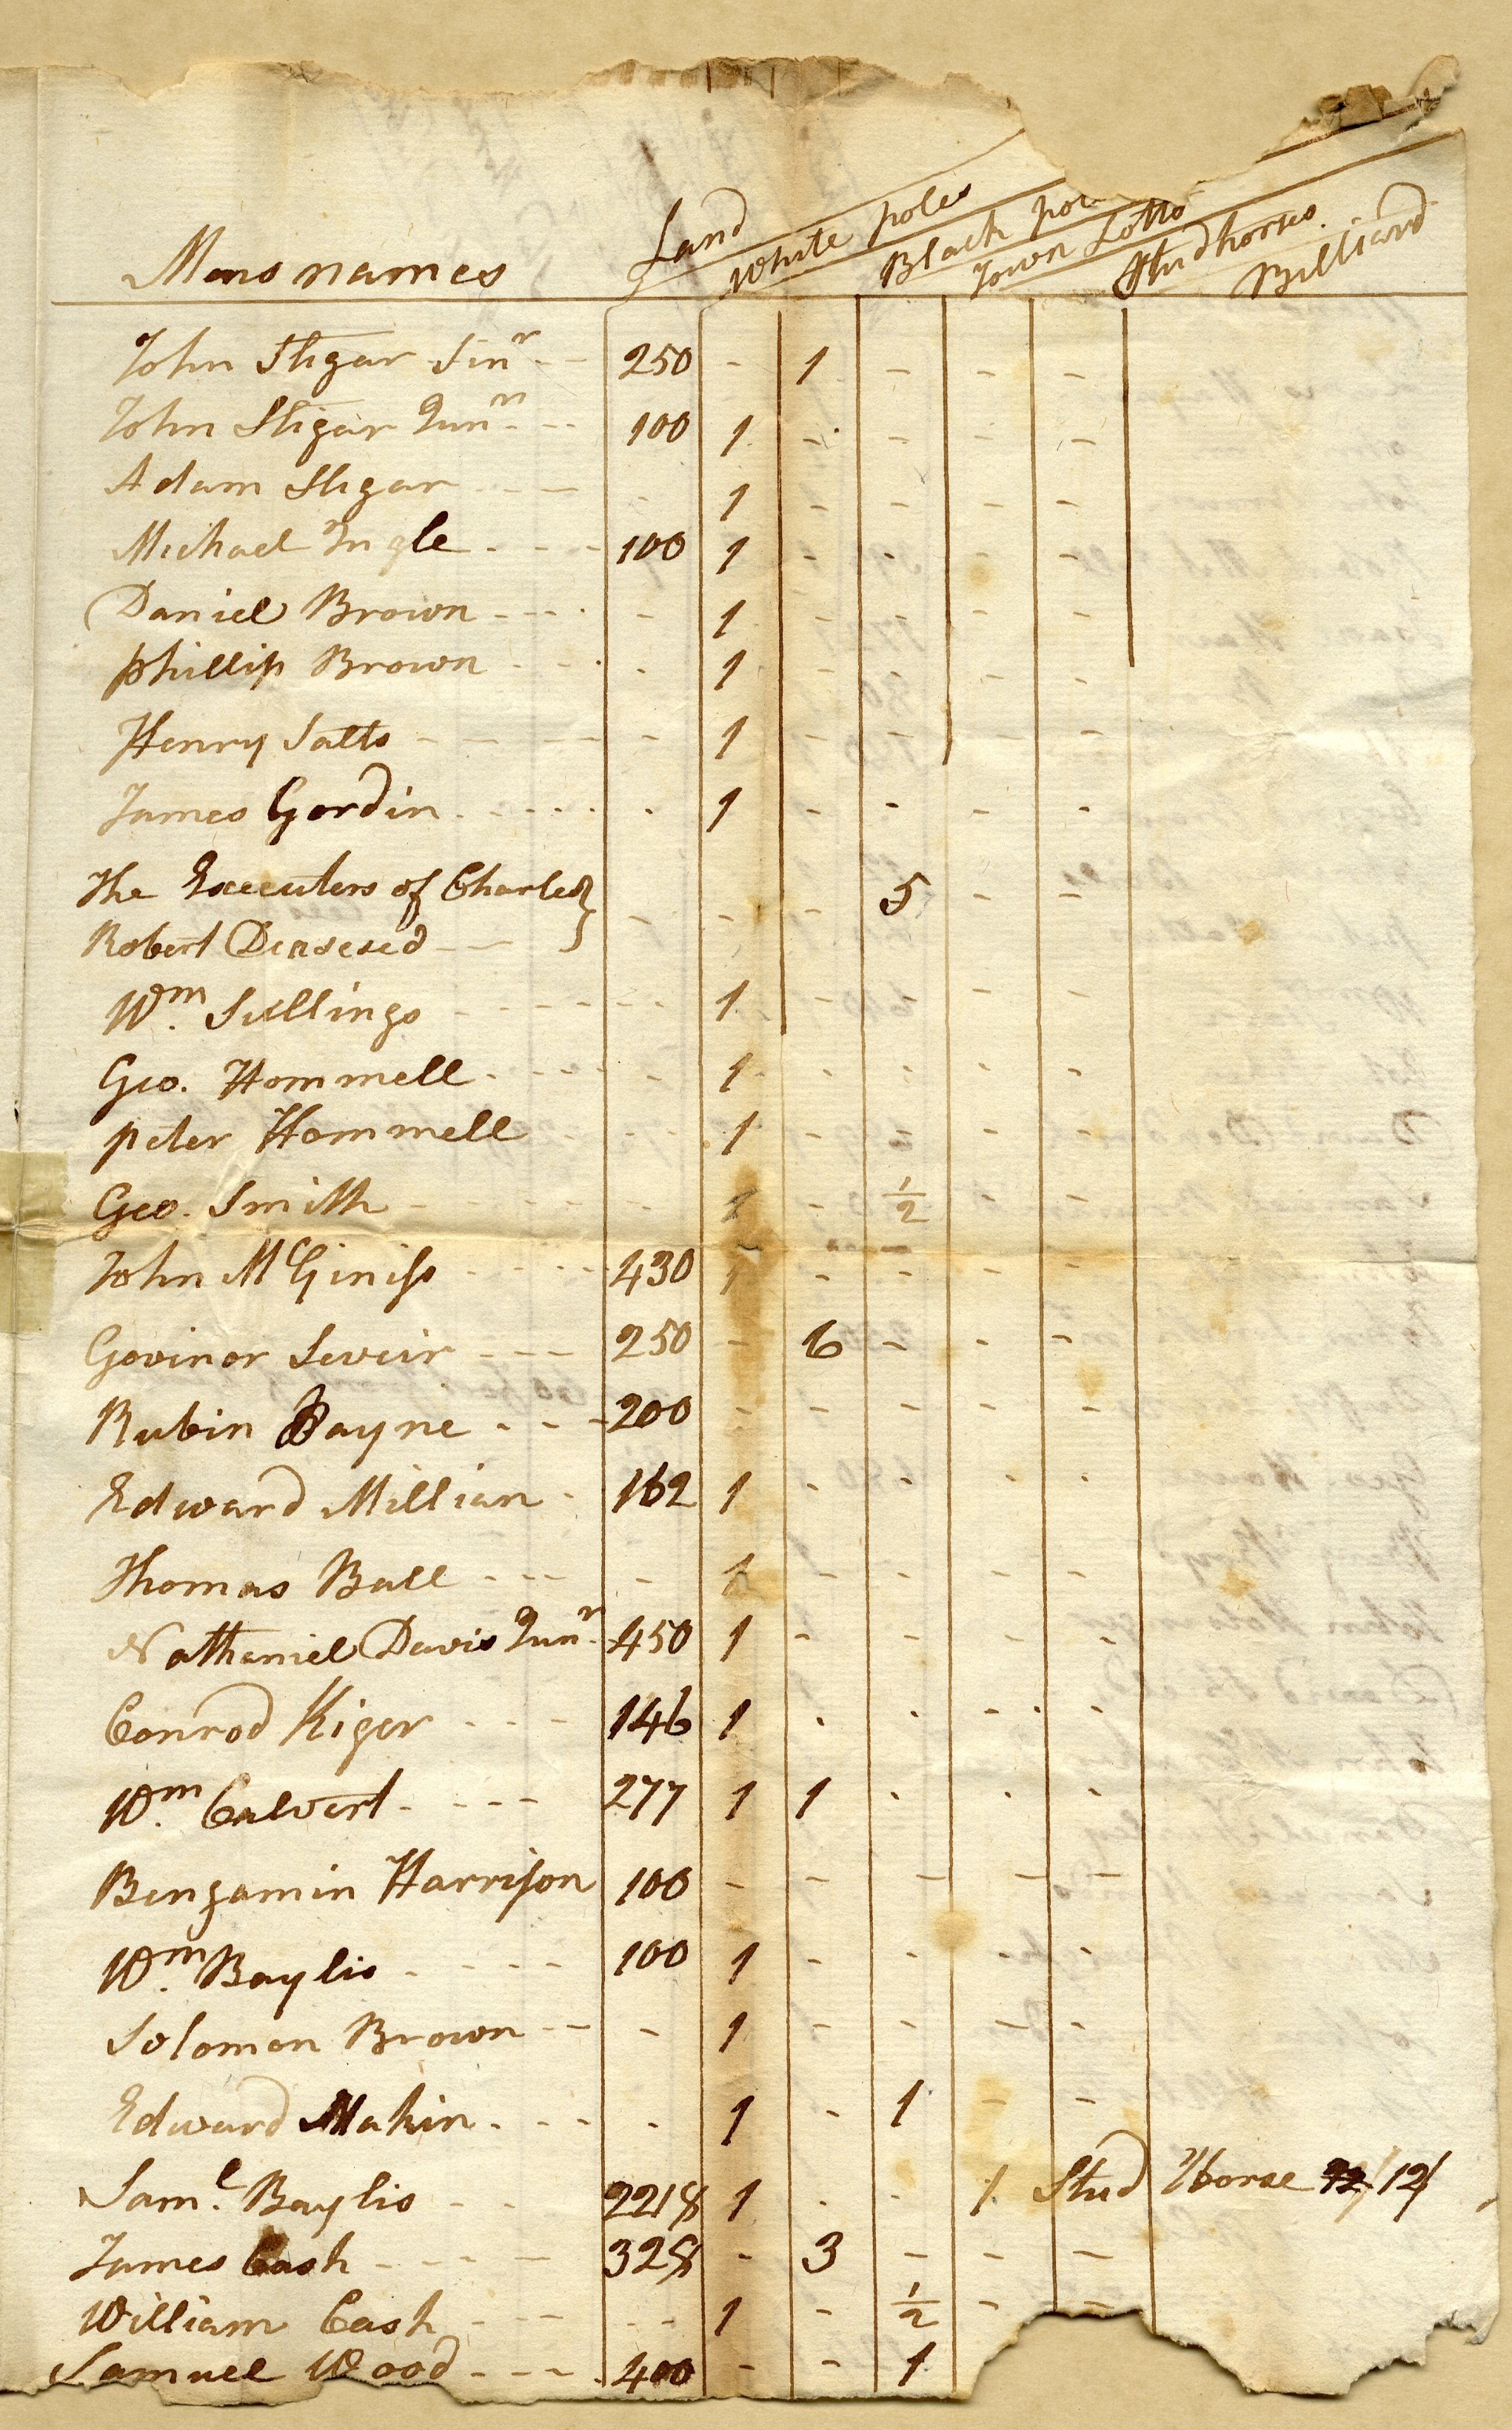 Mens names Land White poles Black pol Town Lotts Studhorses. Billiard
John Sligar Sinr - - 250 - 1 - - -
John Sligar Junr - - 100 1 - - - -
Adam Sligar - - - - 1 - - - -
Michael Ingle - - - - 100 1 - - - -
Daniel Brown - - - - - 1 - - - -
phillip Brown - - - - 1 - - - -
Henry Salts - - - - - 1 - - - -
James Gordin - - - - - 1 - - - -
The Executers of Charles } - - - 5 - -
Robert Deasesed - -
Wm. Sullings - - - - - 1 - - - -
Geo. Hommell - - - - - 1 - - - -
peter Hommell - - 1 - - - -
Geo. Smith - - - - - 1 - 1/2 - -
John McGiniss - - - - 430 1 - - - -
Govinor Seveir - - - 250 - 6 - - -
Rubin Bayne - - - 200 - - - - -
Edward Millian - 162 1 - - - -
Thomas Ball - - - - 1 - - - -
Nathaniel Davis Junr. - 450 1 - - - -
Conrod Kiger - - - 146 1 - - - -
Wm. Calvert - - - - 277 1 1 - - -
Bengamin Harrison 100 - - - - -
Wm. Baylis - - - - 100 1 - - - -
Solomon Brown - - - 1 - - - -
Edward Makin - - - - 1 - 1 - -
Saml. Baylis - - 2218 1 - - 1 Stud Horse 12/
James Cash - - - - 328 - 3 - - -
William Cash - - - - - 1 - 1/2 - -
Samuel Wood - - - - 400 - - 1